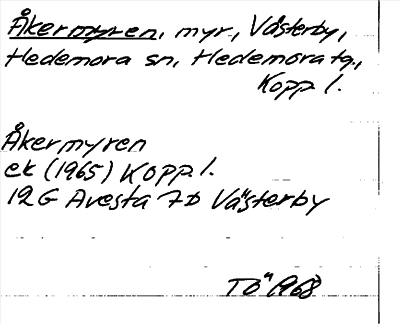 Åkermyren, myr, Västerby,
Hedemora sn, Hedemora tg.,
Kopp l.
Åkermyren
ek (1965) Kopp l.
12G Avesta 7b Västerby
TÖ 1968